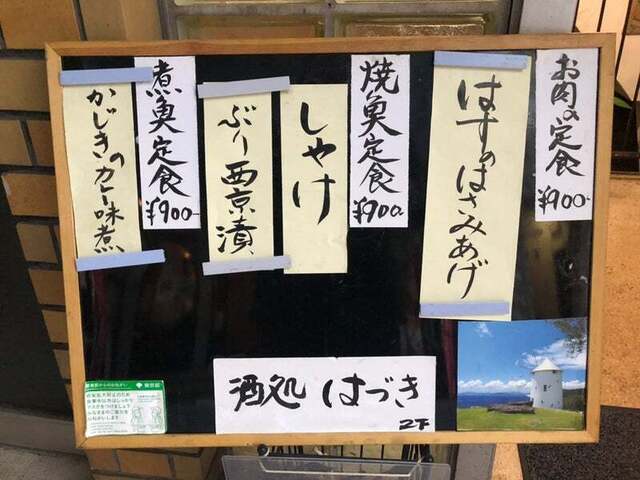 お肉の定食
¥900-
はすのはさみあげ
焼魚定食
¥900
しゃけ
ぶり西京漬
煮魚定食
¥900-
かじきのカレー味煮
酒処 はづき
2F
東京都